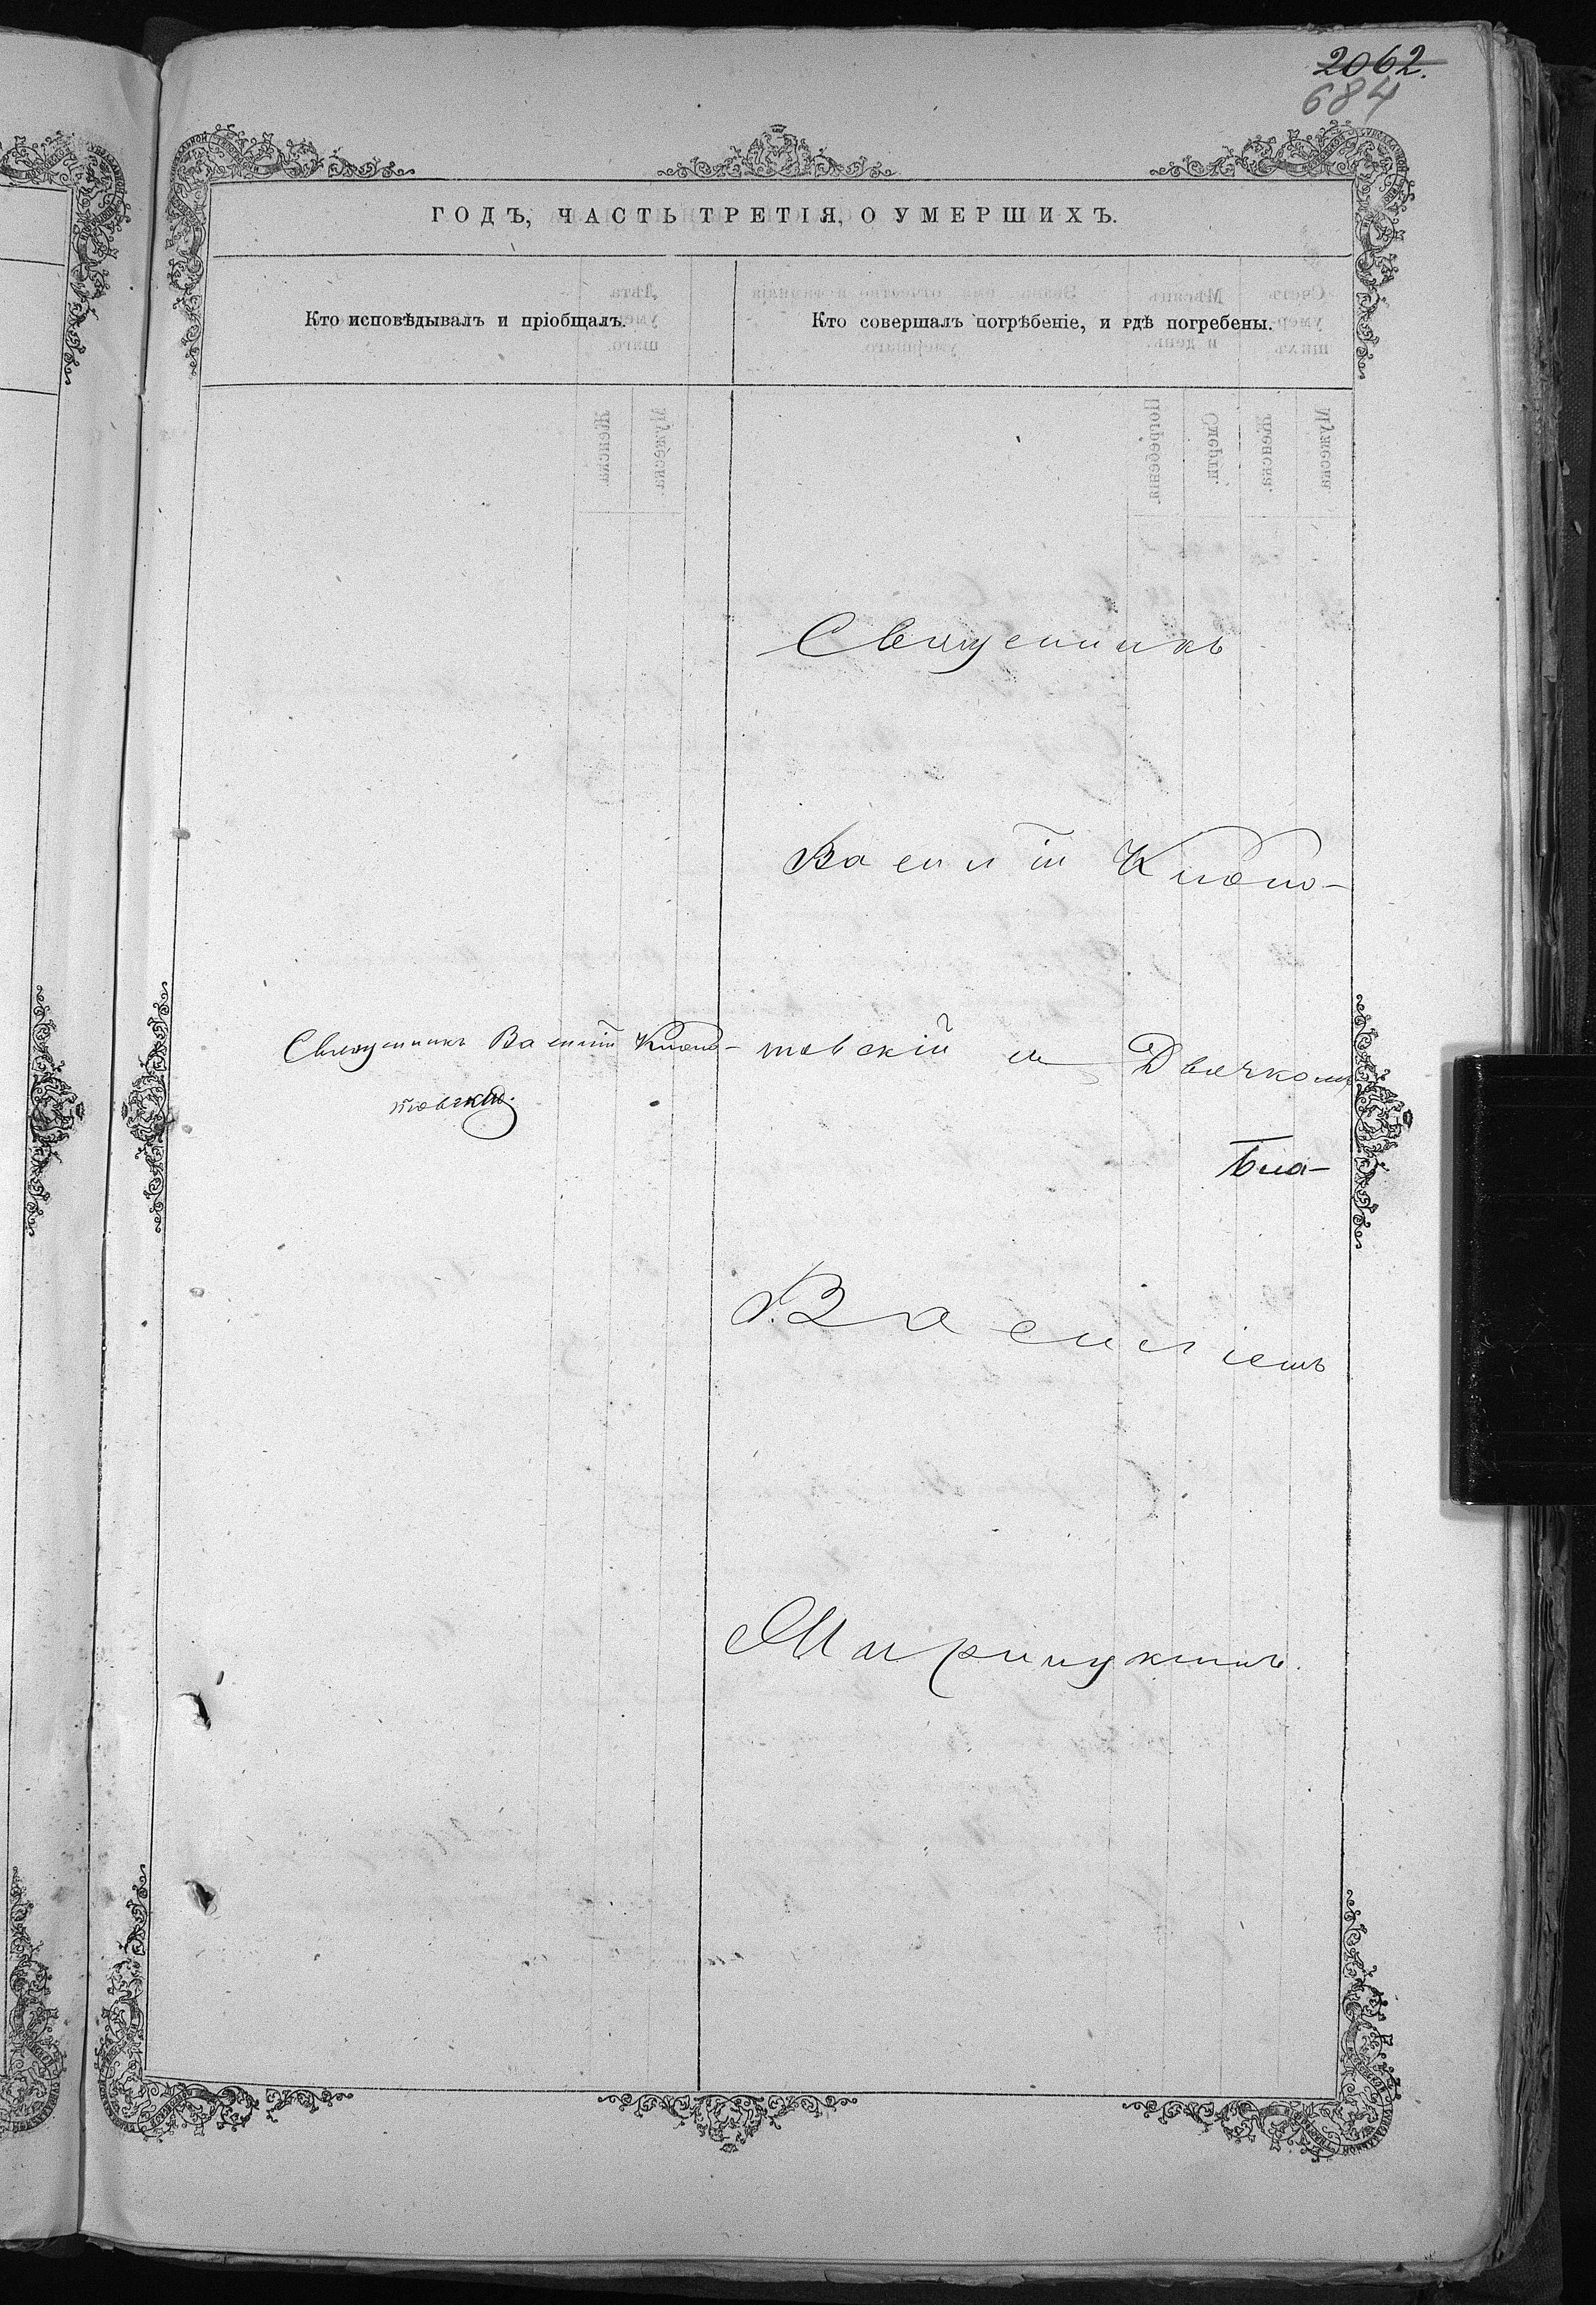 2062.
684
ГОДЪ, ЧАСТЬ ТРЕТІЯ, О УМЕРШИХЪ.
Кто исповѣдывалъ и пріобщалъ.
Кто совершалъ погрѣбеніе, и гдѣ погребены.
Священникъ Василій
товскій.
Священникъ
Василій
товскій съ Дьячкомъ
Василіемъ